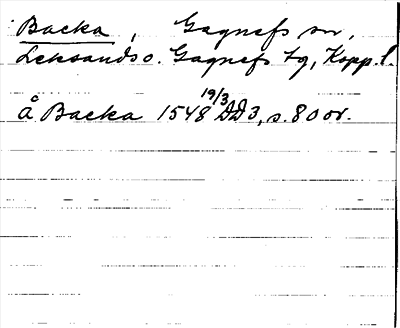 Backa, Gagnefs sn,
Leksands o. Gagnefs tg, Kopp. l.
å Backa 1548 19/3 DD3, s. 80 or.